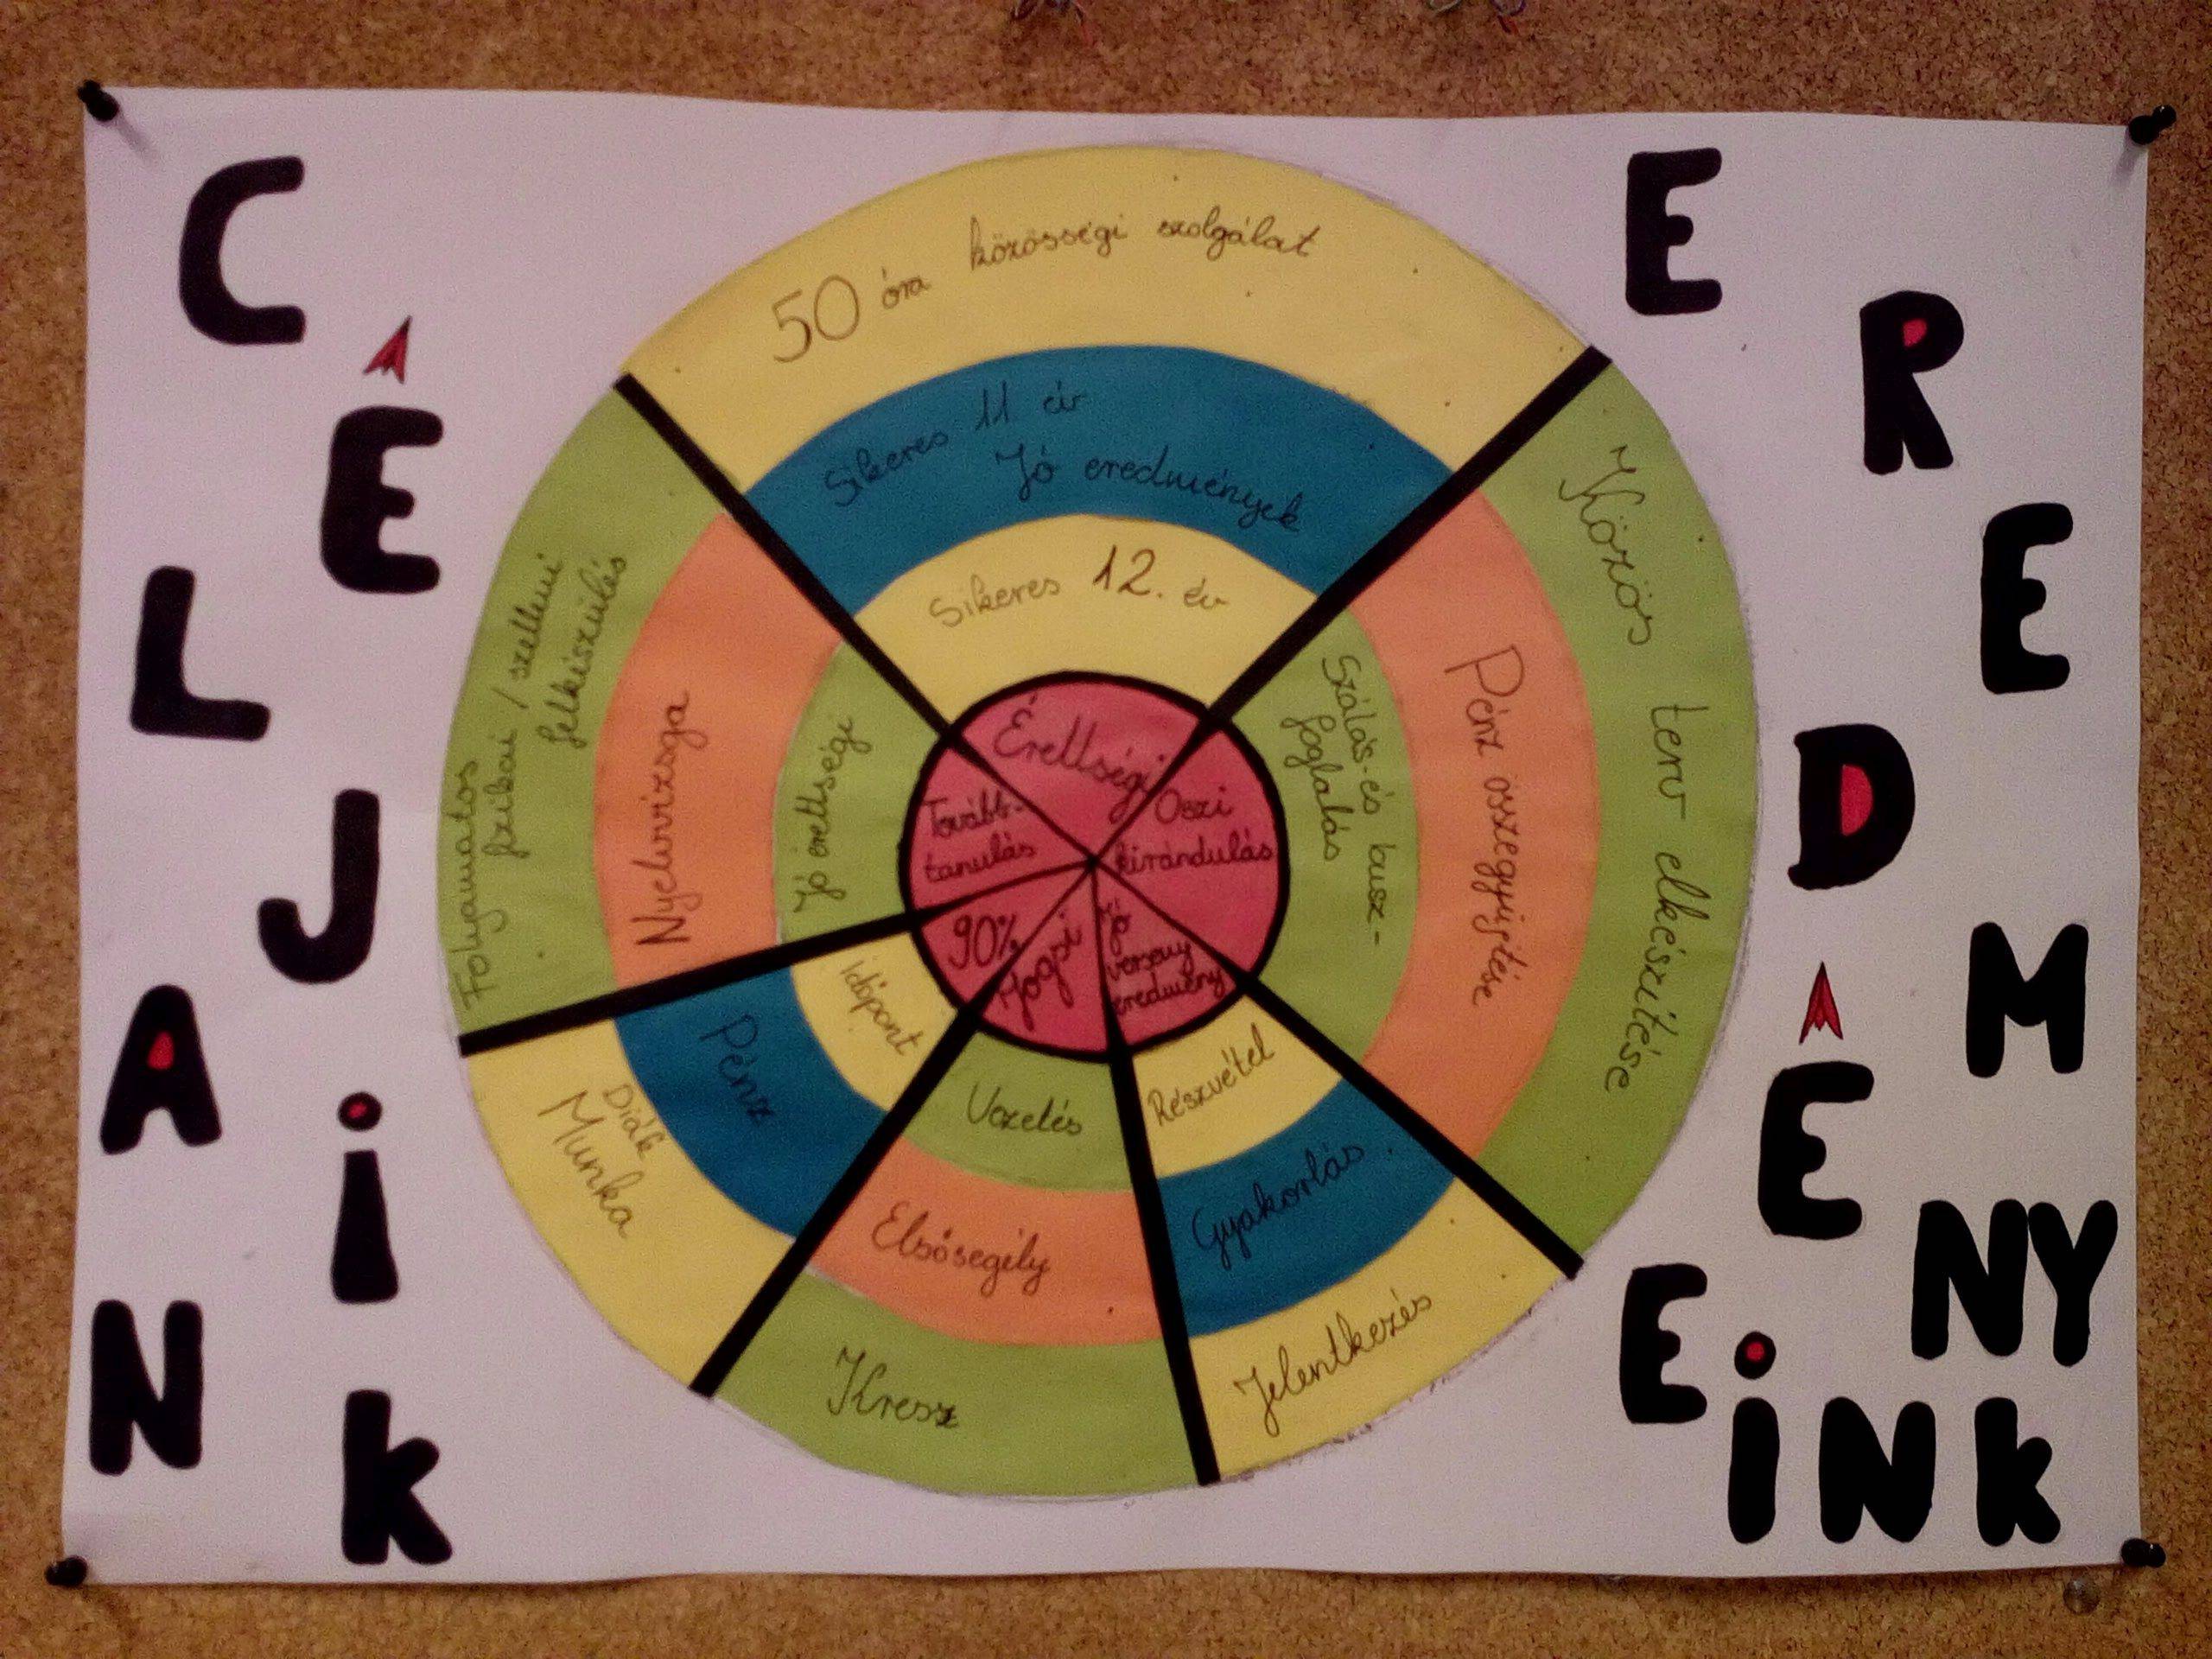 CÉLJAiNk
EREDMÉNYEiNk
50 óra közösségi szolgálat
Sikeres 11 év
Jó eredmények
Sikeres 12. év
Érettségi
Közös terv elkészítése
Pénz összegyűjtése
Szálás-és busz-
foglalás
Őszi
kirándulás
Jelentkezés
Gyakorlás
Részvétel
Jó
verseny
eredmény
Kresz
Elsősegély
Vezetés
Jogsi
Diák
Munka
Pénz
Időpont
90%
Folyamatos
fizikai / szellemi
felkészülés
Nyelvvizsga
Jó érettségi
Tovább-
tanulás